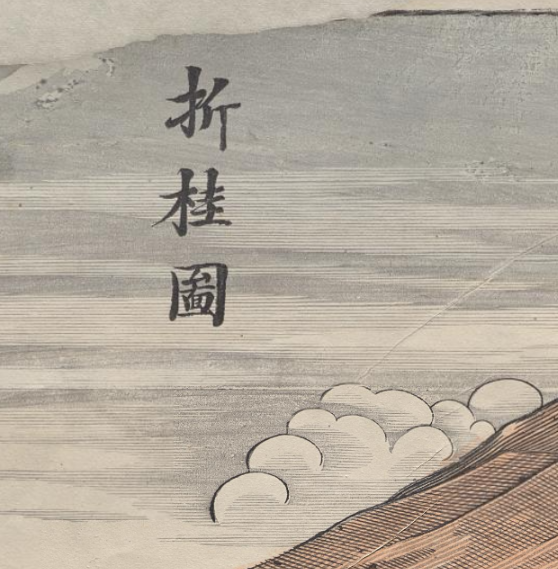 折桂圖